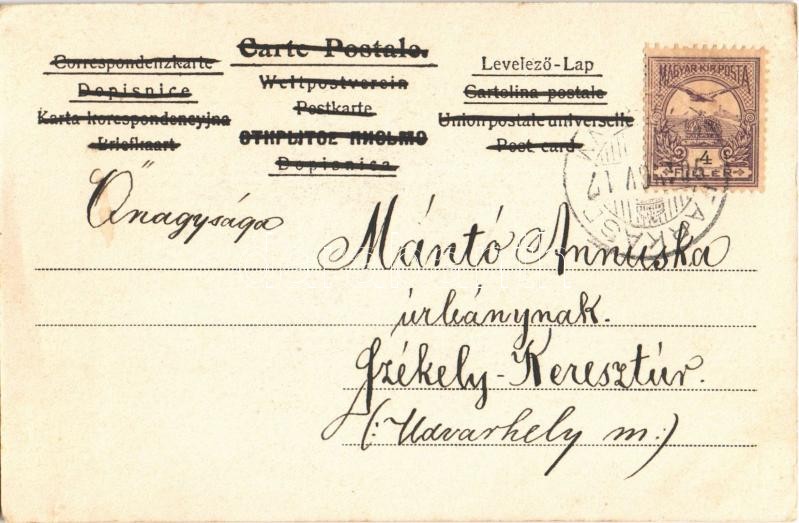 Correspondenzkarte
Dopisnice
Karta korespondencyjna
Briefkaart
Carte Postale.
Weltpostverein
Postkarte
ОТКРЫТОЕ ПИСЬМО
Dopisnica
Levelező-Lap
Cartolina postale
Union postale universelle
Post card
MAGYAR KIR. POSTA
4
FILLÉR
Őnagysága
Mántó Annuska
úrhánynak.
Székely-Keresztúr.
(: Udvarhely m:)